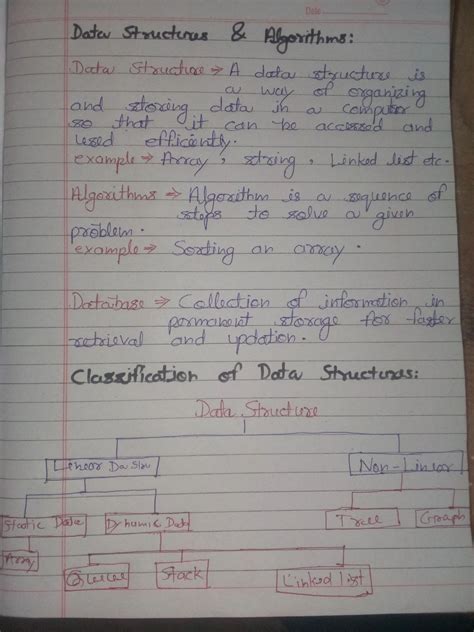 Date
Data Structures & Algorithms:
Data Structure ⇒ A data structure is
a way of organizing
and storing data in a computer
so that it can be accessed and
used efficiently.
example ⇒ Array, string, Linked list etc.
Algorithms ⇒ Algorithm is a sequence of
steps to solve a given
problem.
example ⇒ Sorting an array.
Database ⇒ Collection of information in
permanent storage for faster
retrieval and updation.
Classification of Data Structures:
Data Structure
Linear Da Stru Non-Linear
Static Data Dynamic Data Tree Graph
Array Queue Stack Linked list